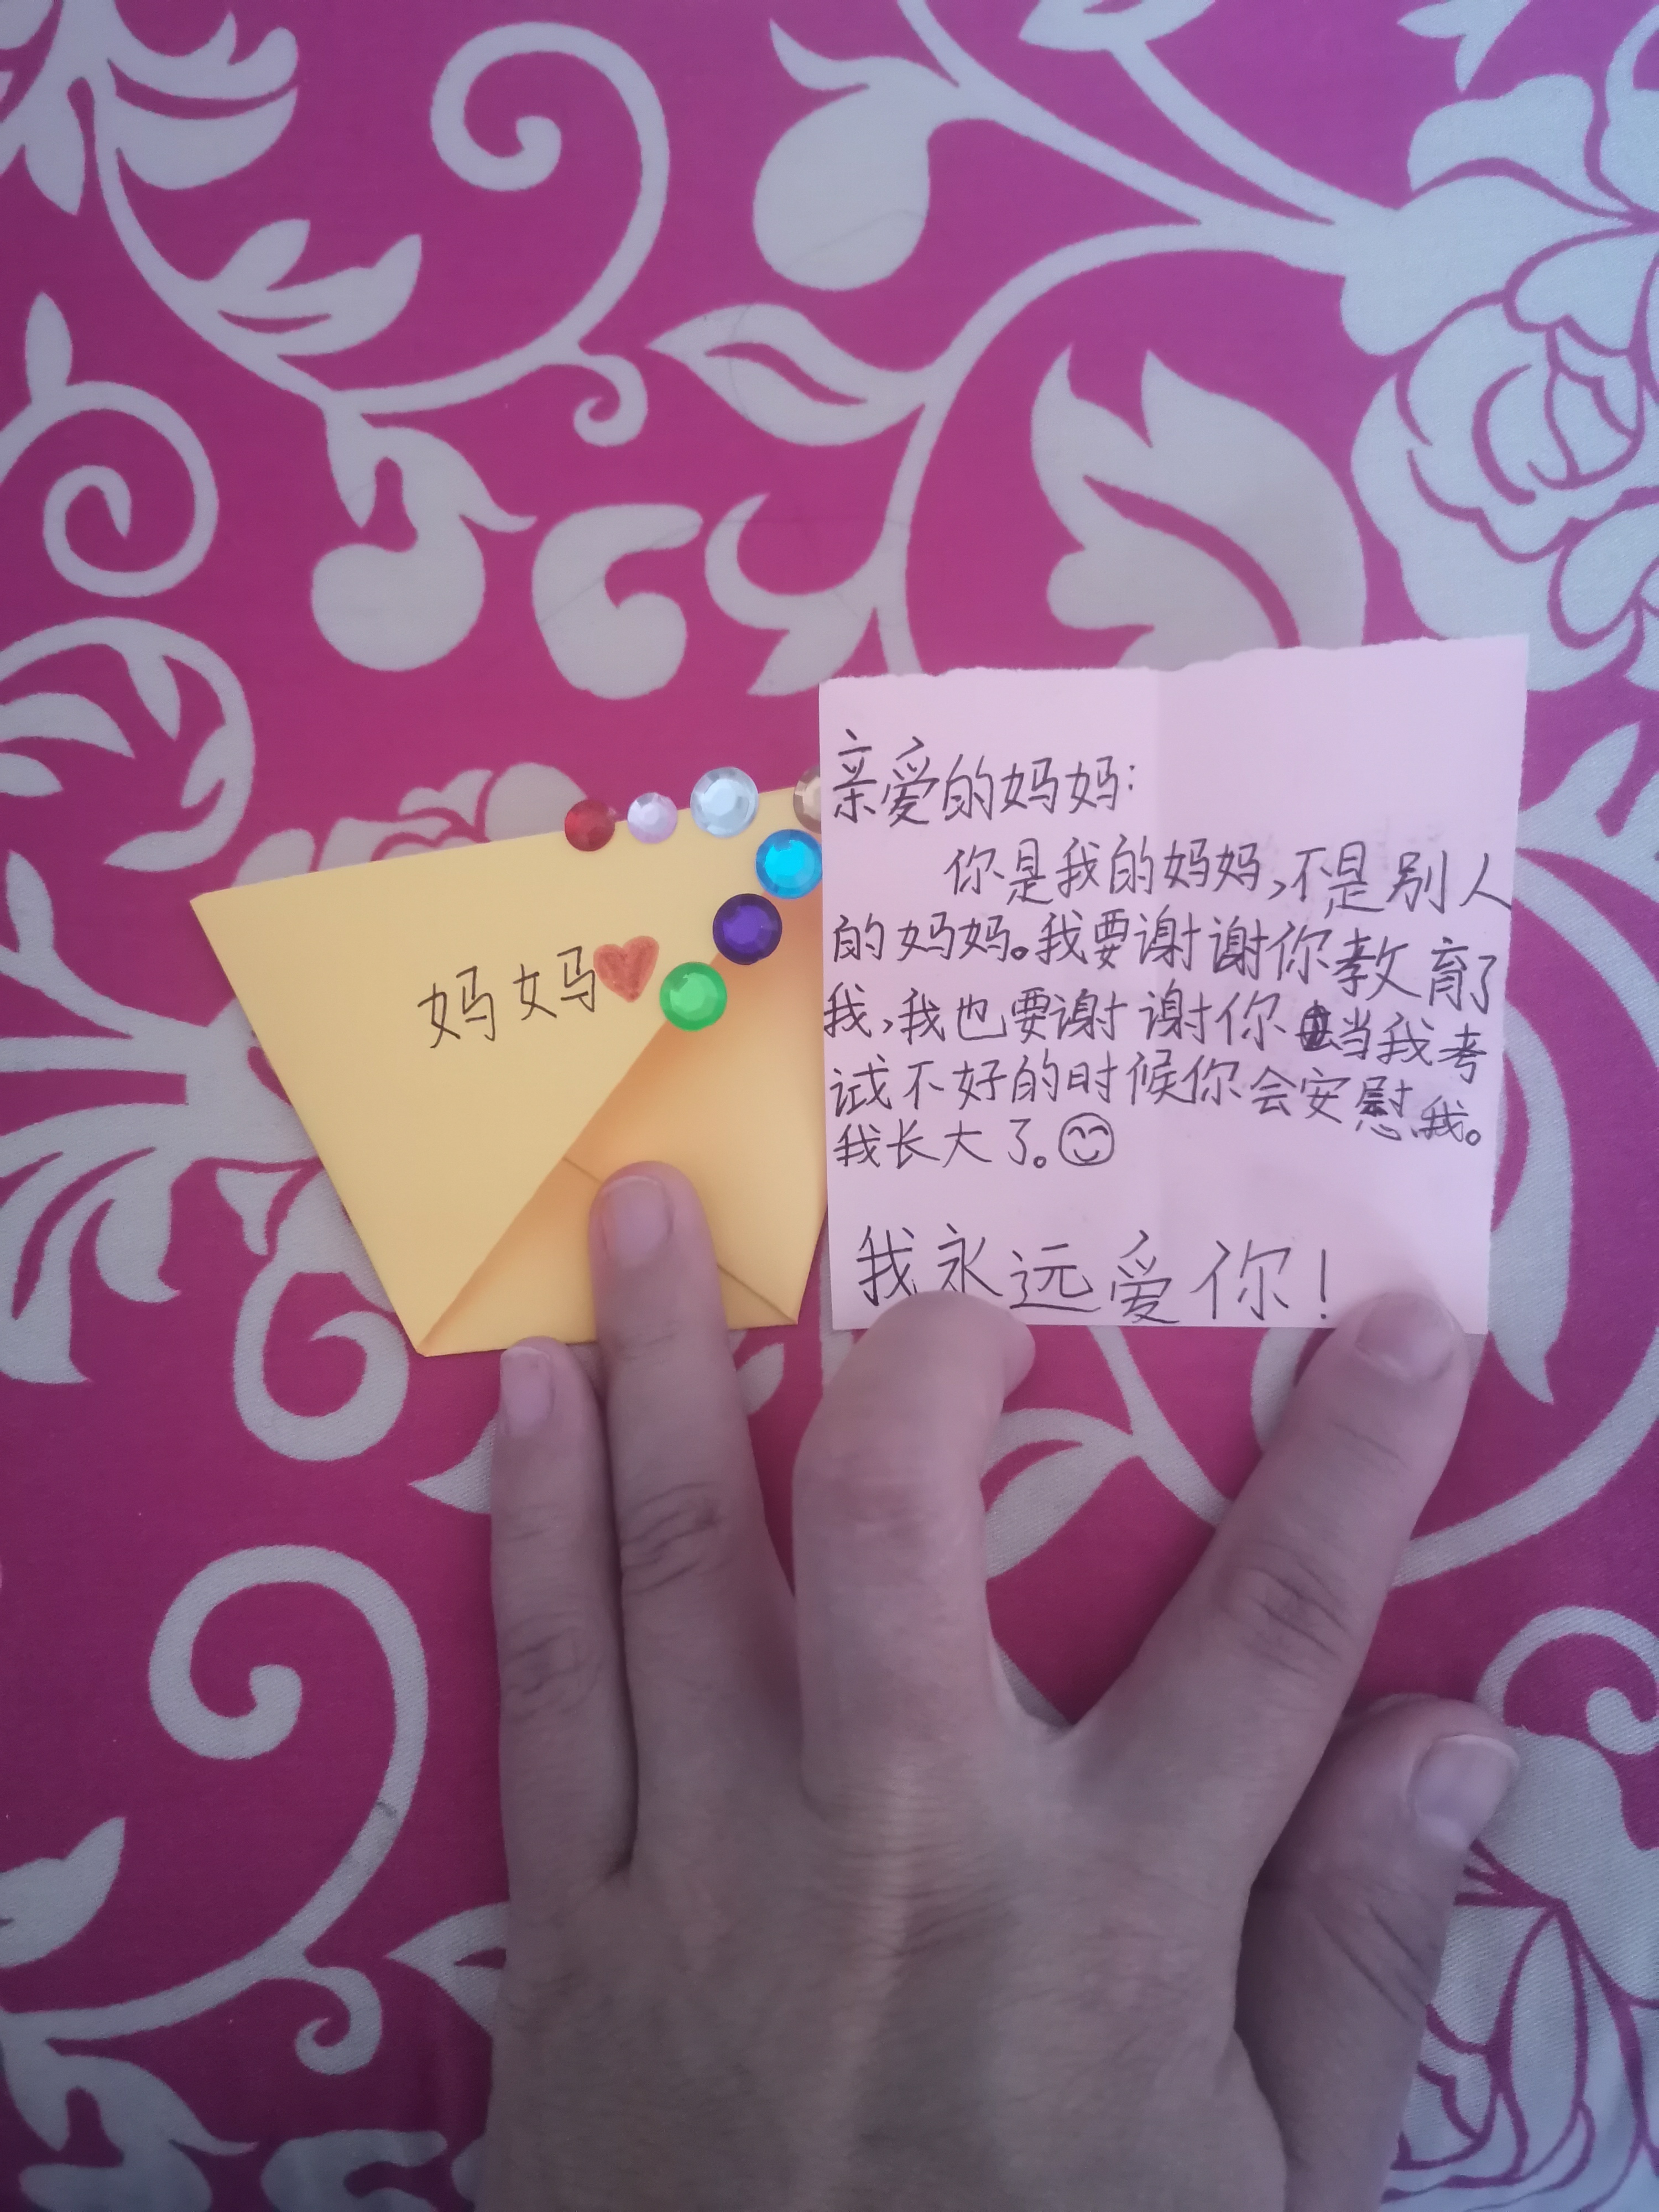 妈妈
亲爱的妈妈：
你是我的妈妈,不是别人
的妈妈。我要谢谢你教育了
我,我也要谢谢你当我考
试不好的时候你会安慰我。
我长大了。
我永远爱你!